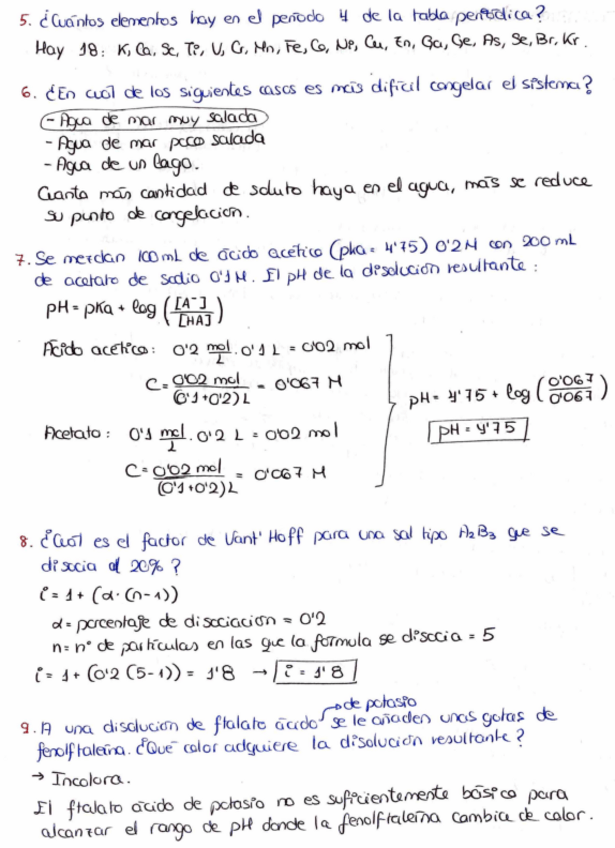 5. ¿Cuántos elementos hay en el periodo 4 de la tabla periódica?
Hay 18: K, Ca, Sc, Ti, V, Cr, Mn, Fe, Co, Ni, Cu, Zn, Ga, Ge, As, Se, Br, Kr.
6. ¿En cuál de los siguientes casos es más difícil congelar el sistema?
- Agua de mar muy salada
- Agua de mar poco salada
- Agua de un lago.
Cuanta más cantidad de soluto haya en el agua, más se reduce
su punto de congelación.
7. Se mezclan 100 mL de ácido acético (pKa = 4'75) 0'2 M con 200 mL
de acetato de sodio 0'1 M. El pH de la disolución resultante:
pH = pKa + log ([A⁻]/[HA])
Ácido acético: 0'2 mol/L · 0'1 L = 0'02 mol
C = 0'02 mol/(0'1+0'2)L = 0'067 M
Acetato: 0'1 mol/L · 0'2 L = 0'02 mol
C = 0'02 mol/(0'1+0'2)L = 0'067 M
pH = 4'75 + log (0'067/0'067)
pH = 4'75
8. ¿Cuál es el factor de Vant' Hoff para una sal tipo A₂B₃ que se
disocia al 20% ?
i = 1 + (α · (n-1))
α = porcentaje de disociación = 0'2
n = nº de partículas en las que la fórmula se disocia = 5
i = 1 + (0'2 (5-1)) = 1'8 → i = 1'8
9. A una disolución de ftalato ácido de potasio se le añaden unas gotas de
fenolftaleína. ¿Qué color adquiere la disolución resultante?
→ Incolora.
El ftalato ácido de potasio no es suficientemente básico para
alcanzar el rango de pH donde la fenolftaleína cambia de color.